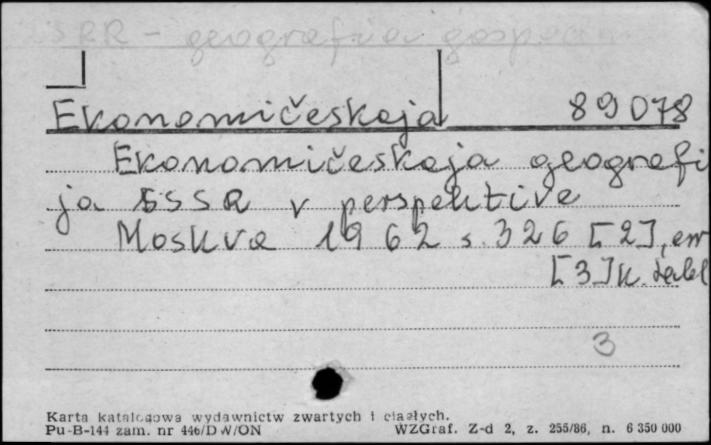 SRR - geografia gospodar
Ekonomičeskaja 89078
Ekonomičeskaja geografi
ja SSSR v perspektive
Moskva 1962 s. 326 [2], err
[3] k. tabl
3
Karta katalogowa wydawnictw zwartych i ciągłych.
Pu-B-144 zam. nr 446/DW/ON WZGraf. Z-d 2, z. 255/86, n. 6 350 000